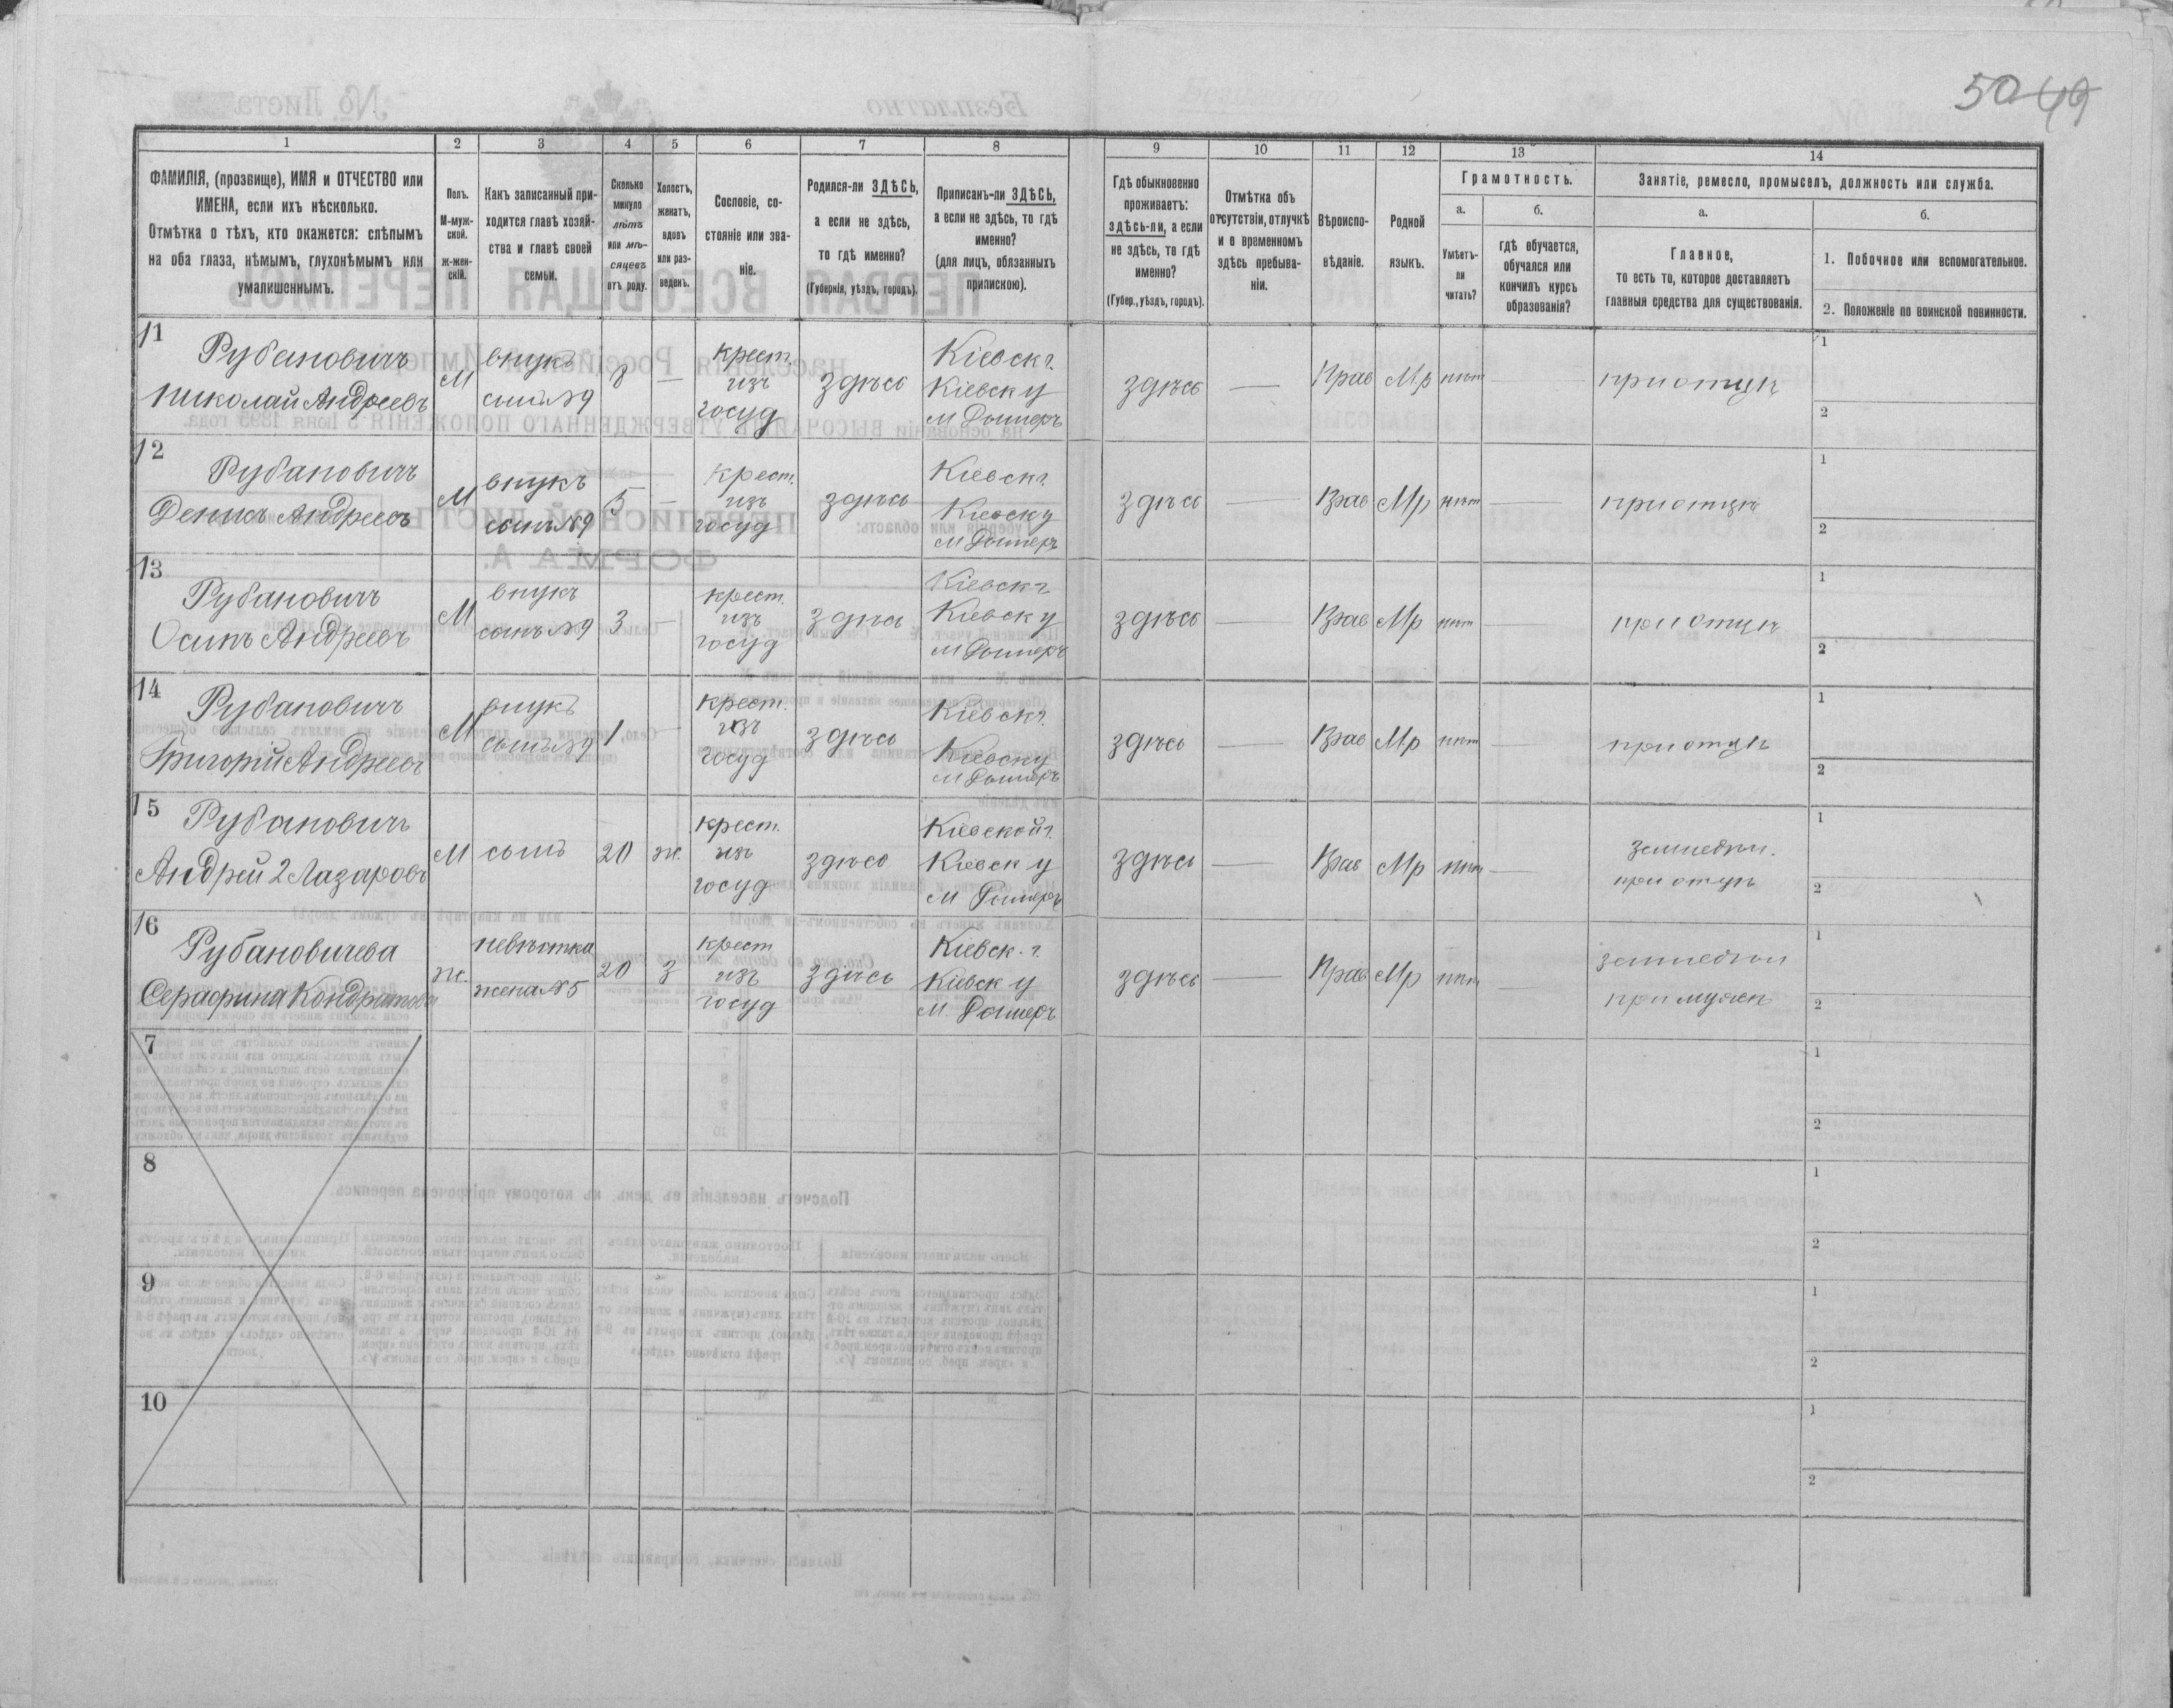 50 49
1 2 3 4 5 6 7 8 9 10 11 12 13 14
ФАМИЛІЯ, (прозвище), ИМЯ и ОТЧЕСТВО или
ИМЕНА, если ихъ нѣсколько.
Отмѣтка о тѣхъ, кто окажется: слѣпымъ
на оба глаза, нѣмымъ, глухонѣмымъ или
умалишеннымъ.
Полъ.
М-муж-
ской.
ж-жен-
скій.
Какъ записанный при-
ходится главѣ хозяй-
ства и главѣ своей
семьи.
Сколько
минуло
лѣтъ
или мѣ-
сяцевъ
отъ роду.
Холостъ,
женатъ,
вдовъ
или раз-
веденъ.
Сословіе, со-
стояніе или зва-
ніе.
Родился-ли ЗДѢСЬ,
а если не здѣсь,
то гдѣ именно?
(Губернія, уѣздъ, городъ).
Приписанъ-ли ЗДѢСЬ,
а если не здѣсь, то гдѣ
именно?
(для лицъ, обязанныхъ
припискою).
Гдѣ обыкновенно
проживаетъ:
здѣсь-ли, а если
не здѣсь, то гдѣ
именно?
(Губер., уѣздъ, городъ).
Отмѣтка объ
отсутствіи, отлучкѣ
и о временномъ
здѣсь пребыва-
ніи.
Вѣроиспо-
вѣданіе.
Родной
языкъ.
Грамотность.
а.
Умѣетъ-
ли
читать?
б.
гдѣ обучается,
обучался или
кончилъ курсъ
образованія?
Занятіе, ремесло, промыселъ, должность или служба.
а.
Главное,
то есть то, которое доставляетъ
главныя средства для существованія.
б.
1. Побочное или вспомогательное.
2. Положеніе по воинской повинности.
11
Рубановичъ
Николай Андреевъ
М
внукъ
сынъ №9
8
—
крест.
изъ
госуд
здѣсь
Кіевск г.
Кіевск у
м Дымеръ
здѣсь
—
Прав
Мр
нѣт
—
при отцѣ
1
2
12
Рубановичъ
Денисъ Андреевъ
М
внукъ
сынъ №9
5
—
крест.
изъ
госуд
здѣсь
Кіевск г.
Кіевск у
м Дымеръ
здѣсь
—
Прав
Мр
нѣт
—
при отцѣ
1
2
13
Рубановичъ
Осипъ Андреевъ
М
внукъ
сынъ №9
3
—
крест.
изъ
госуд
здѣсь
Кіевск г
Кіевск у
м Дымеръ
здѣсь
—
Прав
Мр
нѣт
—
при отцѣ
1
2
14
Рубановичъ
Григорій Андреевъ
М
внукъ
сынъ №9
1
—
крест.
изъ
госуд
здѣсь
Кіевск г.
Кіевск у
м Дымеръ
здѣсь
—
Прав
Мр
нѣт
—
при отцѣ
1
2
15
Рубановичъ
Андрей 2 Лазаровъ
М
сынъ
20
ж.
крест.
изъ
госуд
здѣсь
Кіевской г.
Кіевск у
м Дымеръ
здѣсь
—
Прав
Мр
нѣт
—
земледѣл.
при отцѣ
1
2
16
Рубановичева
Серафина Кондратова
ж.
невѣстка
жена №5
20
З
крест
изъ
госуд
здѣсь
Кіевск. г.
Кіевск у
м. Дымеръ
здѣсь
—
Прав
Мр
нѣт
—
земледѣл
при мужѣ
1
2
7
1
2
8
1
2
9
1
2
10
1
2